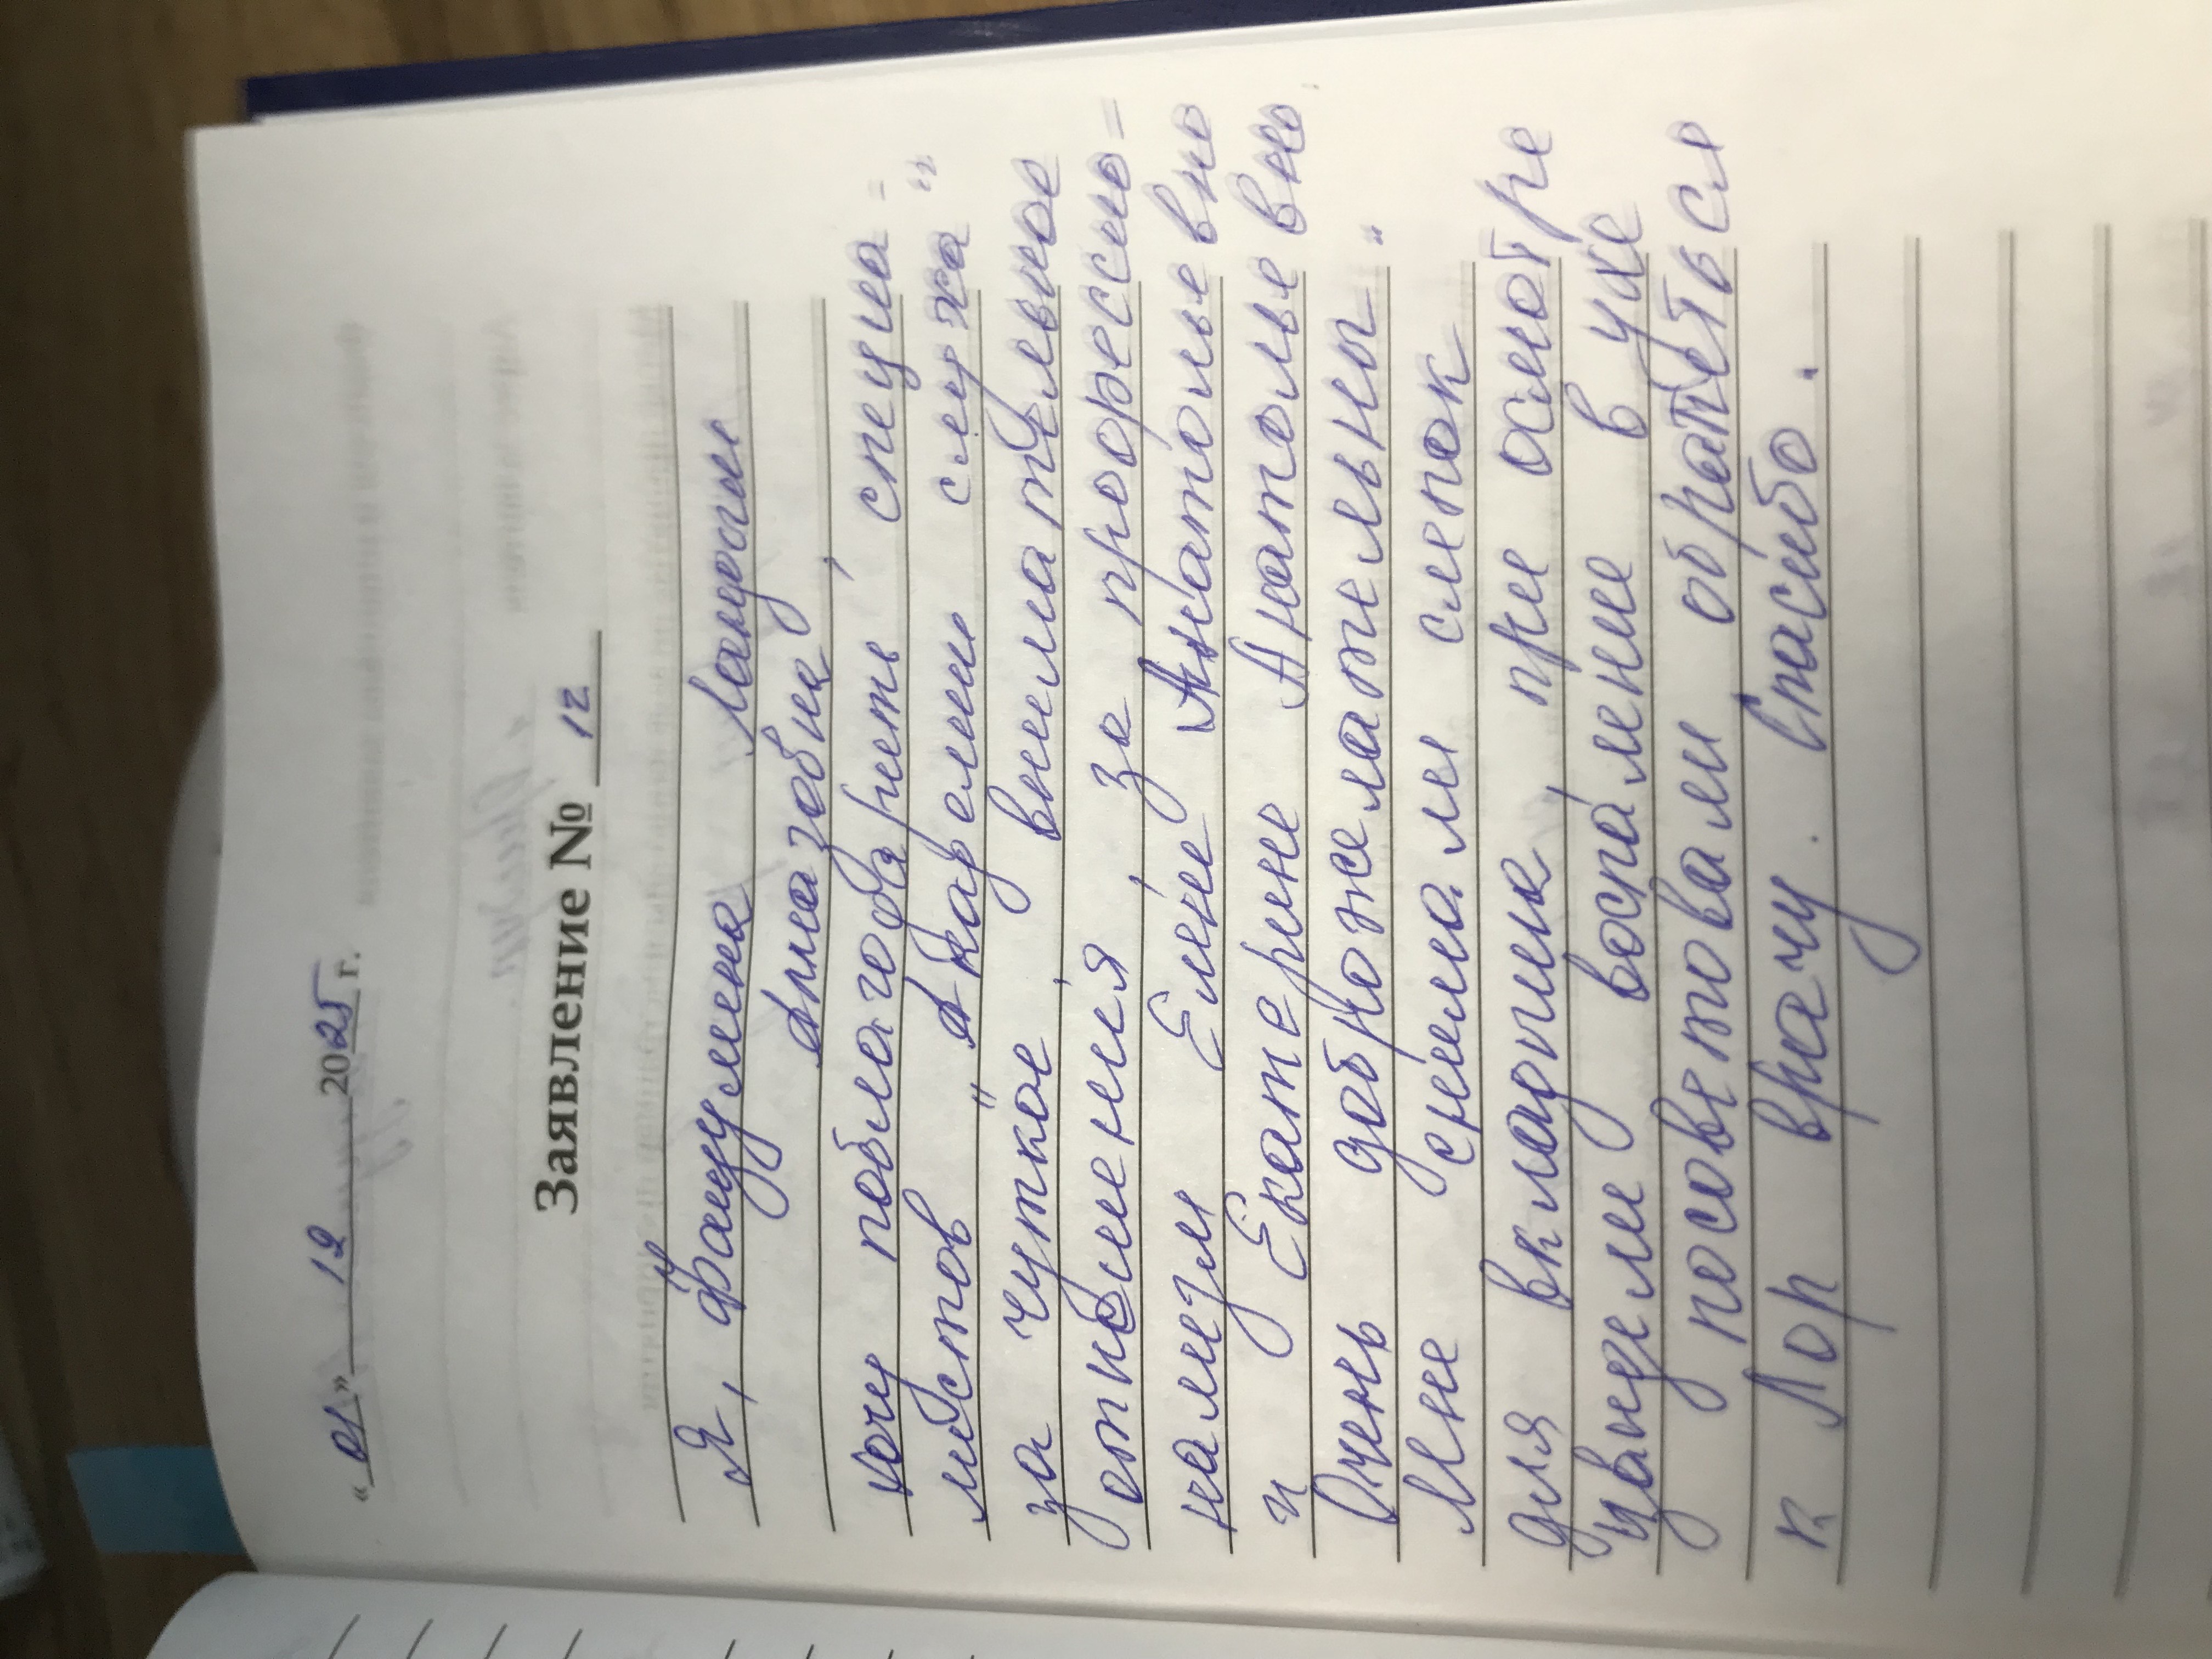 «01» 12 2025 г.
Заявление № 12
Я, Фацулина Мандоги
Алмазовна,
хочу поблагодарить специа=
листов "Академии слуха"
за чуткое, внимательное
отношения, за профессио=
нализм Елене Анатольевно
и Екатерине Анатольевно.
Очень доброжелательны.
Мне снимали слепок
для вкладыша, при осмотре
увидели воспаление в ухе
посоветовали обратиться
к Лор врачу. Спасибо.